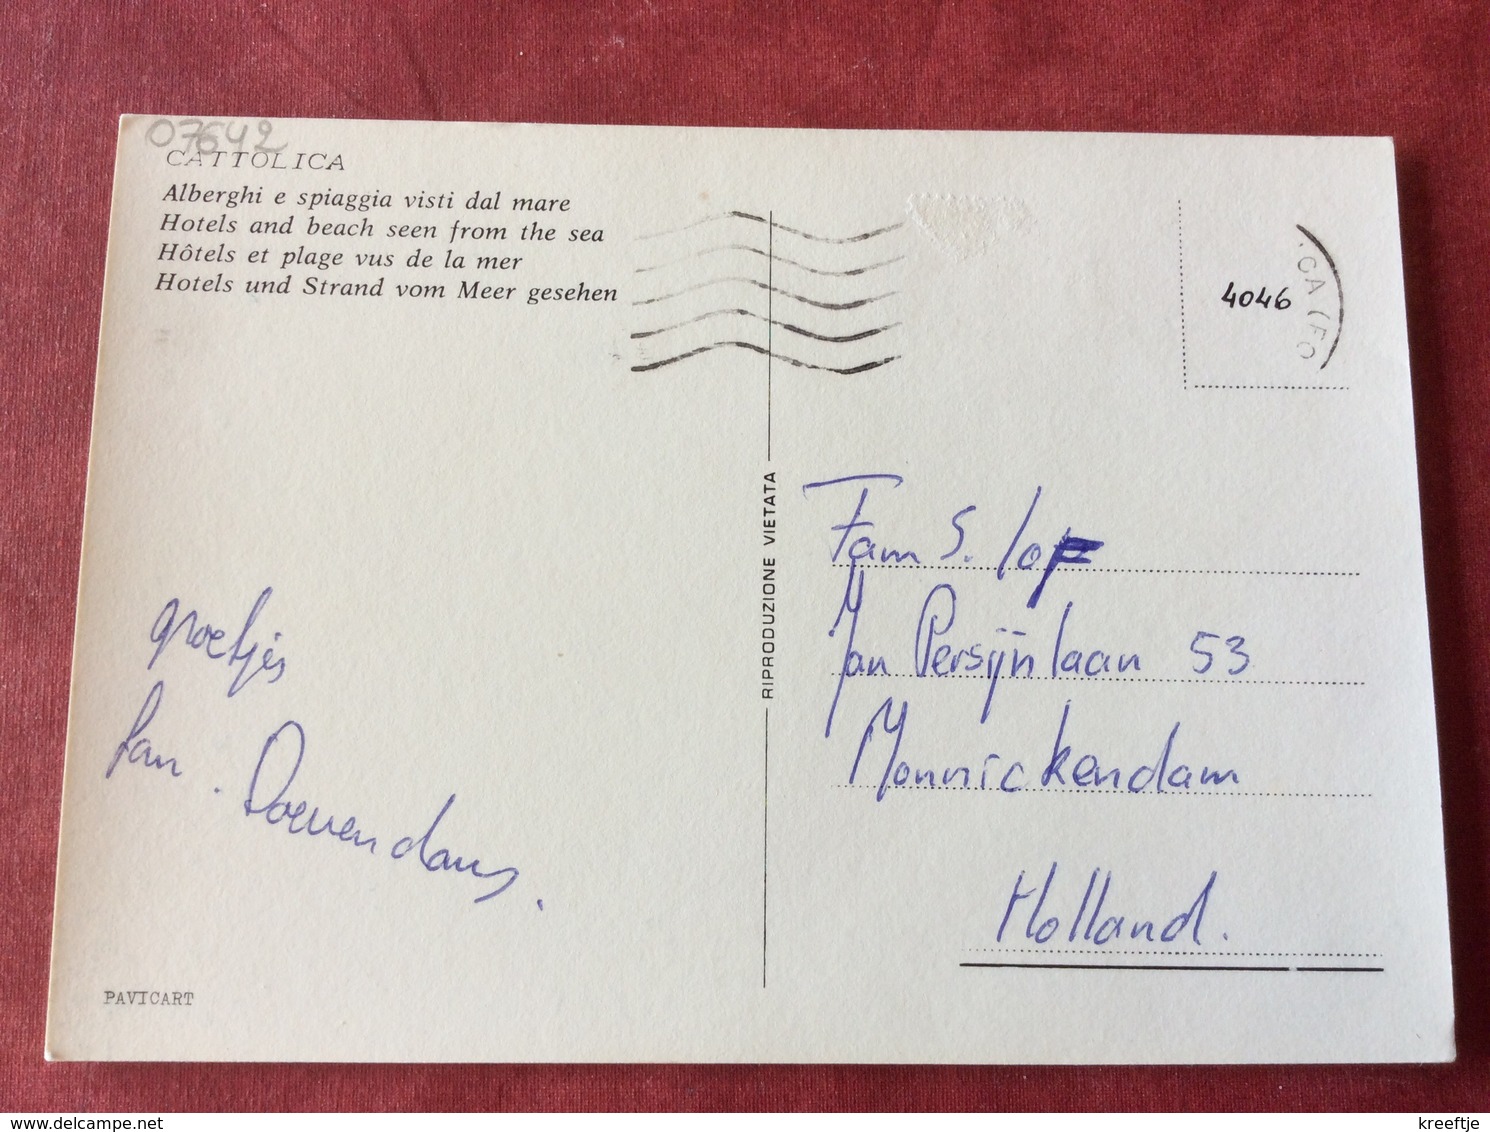 07642
CATTOLICA
Alberghi e spiaggia visti dal mare
Hotels and beach seen from the sea
Hôtels et plage vus de la mer
Hotels und Strand vom Meer gesehen
groetjes
fam. Doevendans.
PAVICART
RIPRODUZIONE VIETATA
4046
CA (FO
Fam S. lof
Jan Persijnlaan 53
Monnickendam
Holland.
kreeftje